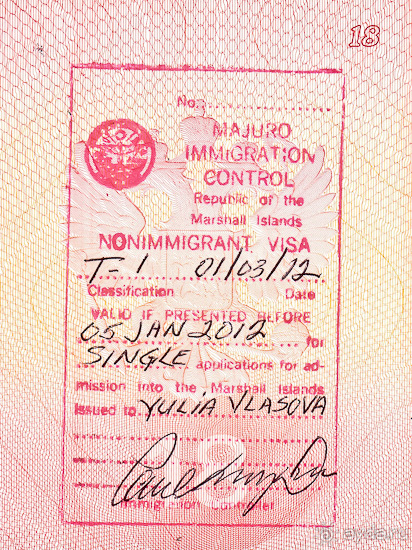 18
No.
MAJURO
IMMIGRATION
CONTROL
Republic of the
Marshall Islands
NONIMMIGRANT VISA
T-1 01/03/12
Classification Date
VALID IF PRESENTED BEFORE
05 JAN 2012 for
SINGLE applications for ad-
mission into the Marshall Islands
Issued to YULIA VLASOVA
Immigration Controller